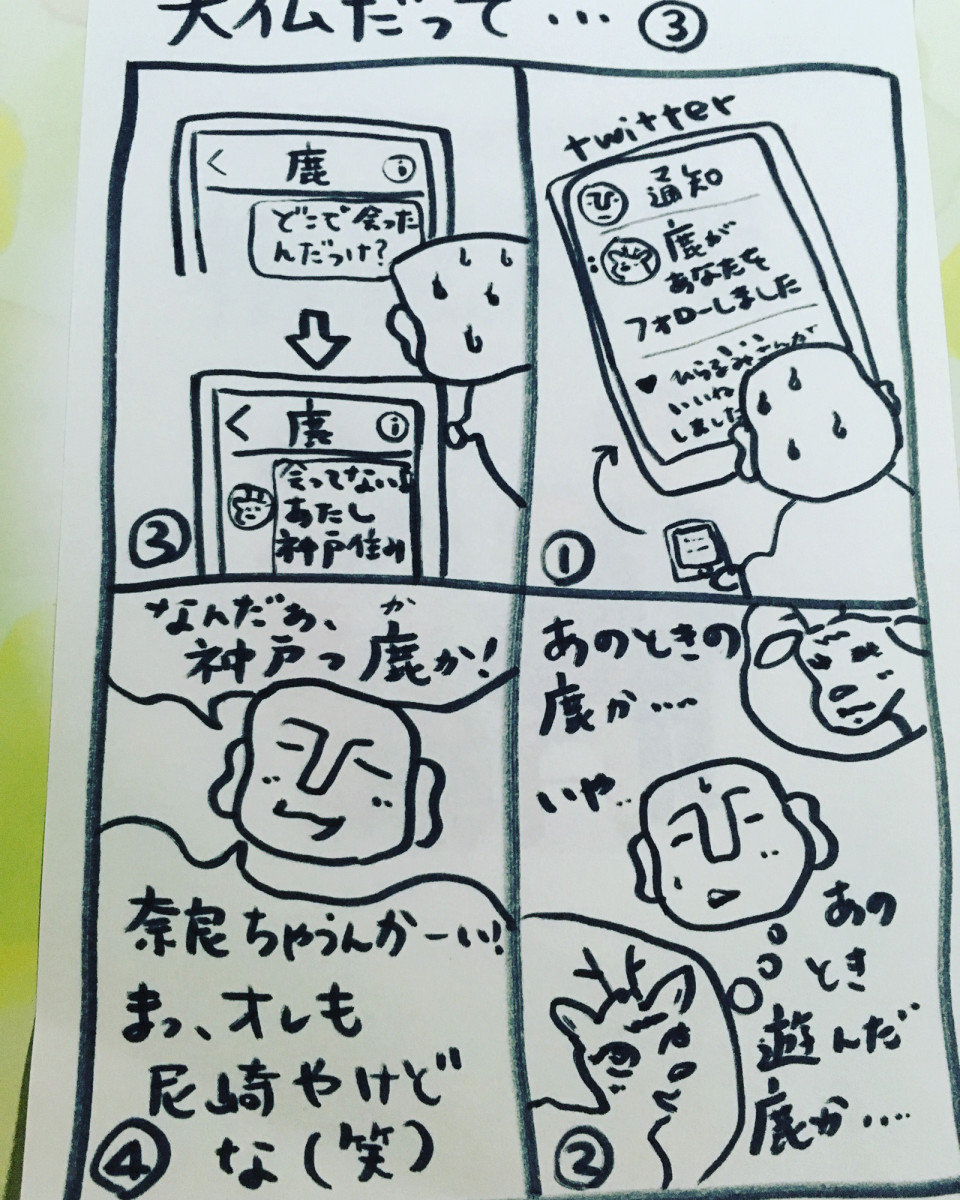 大仏だって…③
twitter
通知
鹿が
あなたを
フォローしました
いいね
しました
①
あのときの
鹿か….
いや..
あの
とき
遊んだ
鹿か….
②
鹿
どこで会った
んだっけ?
鹿
会ってない!
あたし
神戸住み
③
なんだぁ、
神戸っ鹿か!
か
奈良ちゃうんかーい!
まっ、オレも
尼崎やけど
な(笑)
④